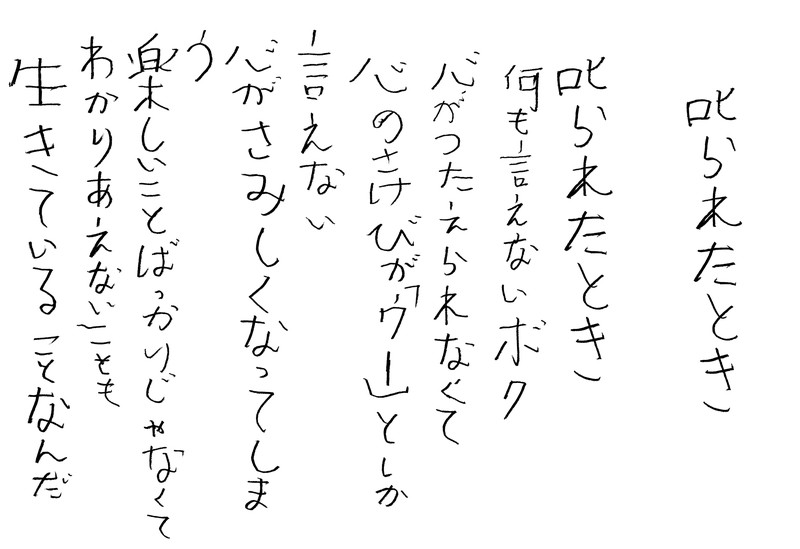 叱られたとき
叱られたとき
何も言えないボク
心がつたえられなくて
心のさけびが「ウー」としか
言えない
心がさみしくなってしま
う
楽しいことばっかりじゃなくて
わかりあえないことも
生きていることなんだ